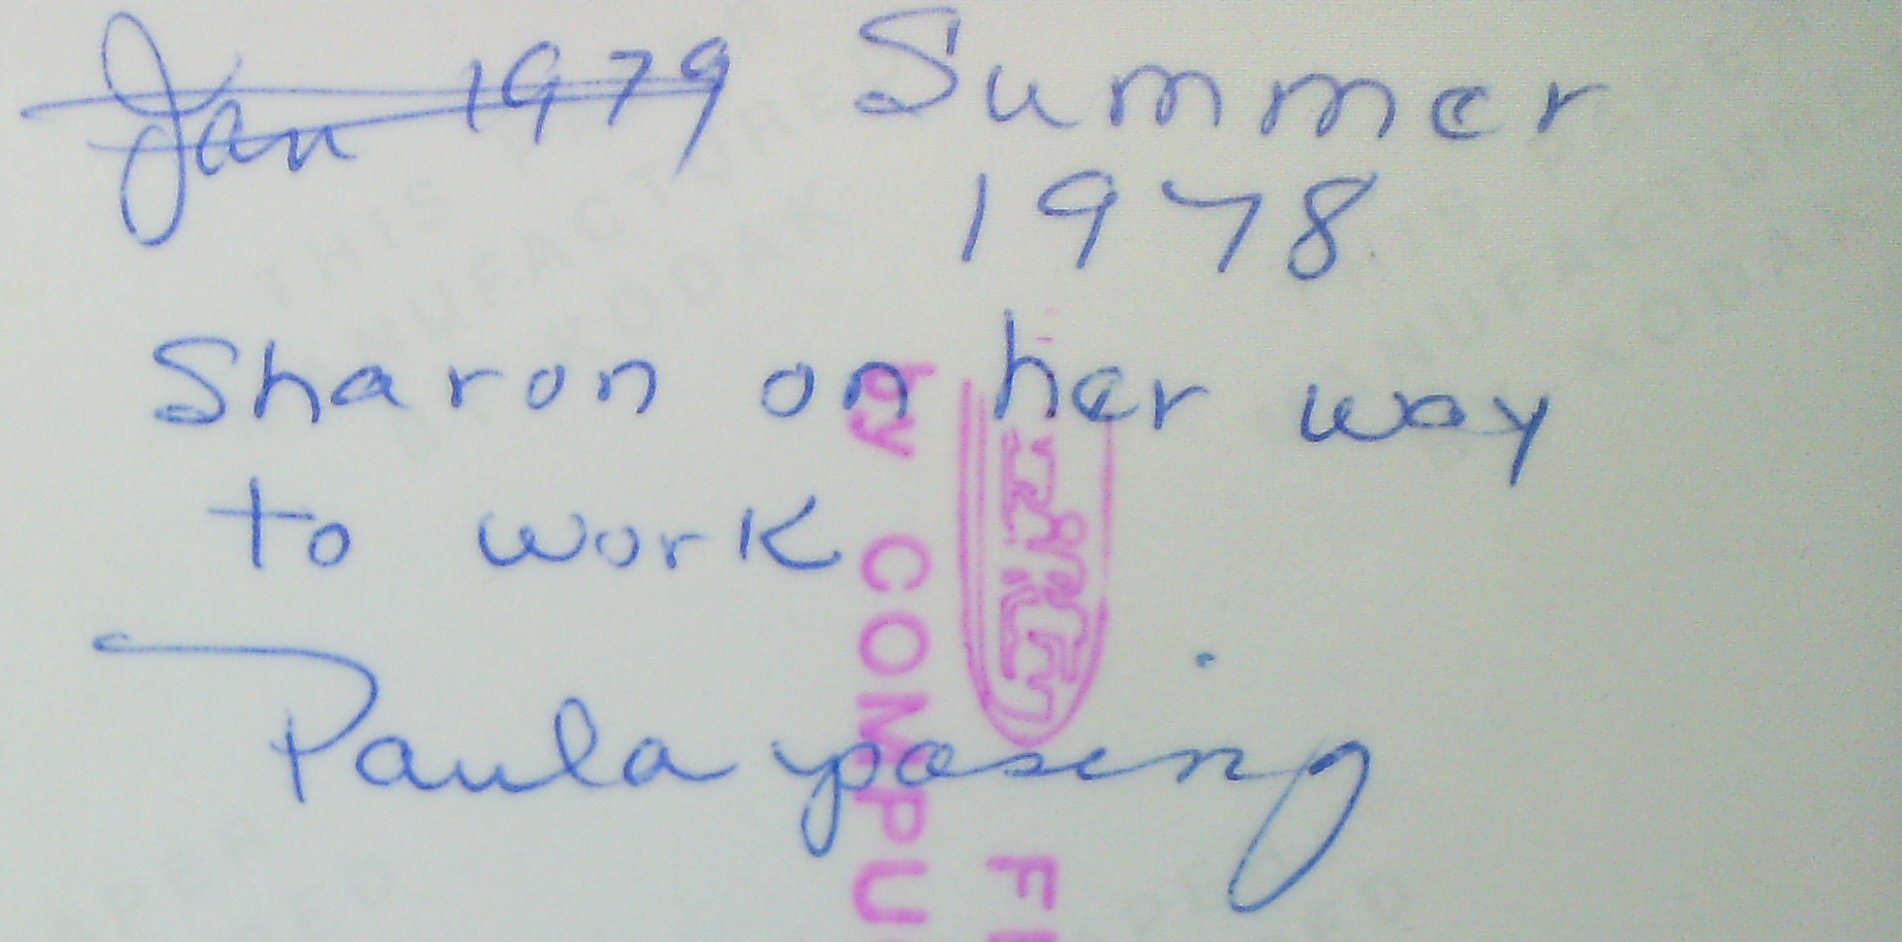 Jan 1979 Summer
1978
Sharon on her way
to work
Paula posing
by COMPU